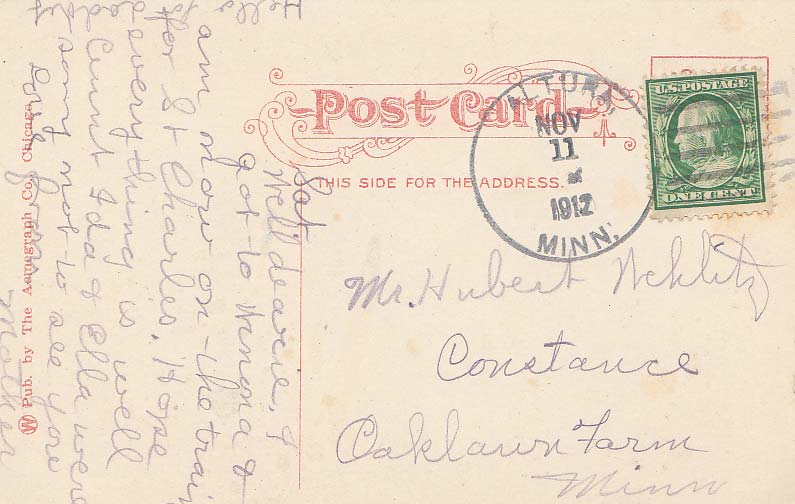 Post Card
THIS SIDE FOR THE ADDRESS.
ALTURA
NOV
11
1912
MINN.
U.S. POSTAGE
ONE CENT
Mr. Hubert
Constance
Oaklawn Farm
Minn
Sat.
Well dearie, I
got to Winona &
am now on the train
for St Charles. Hope
every thing is well
Aunt Ida & Ella were
sorry not to see you
Love from
Mother
Hello
Pub. by The Acmegraph Co., Chicago.